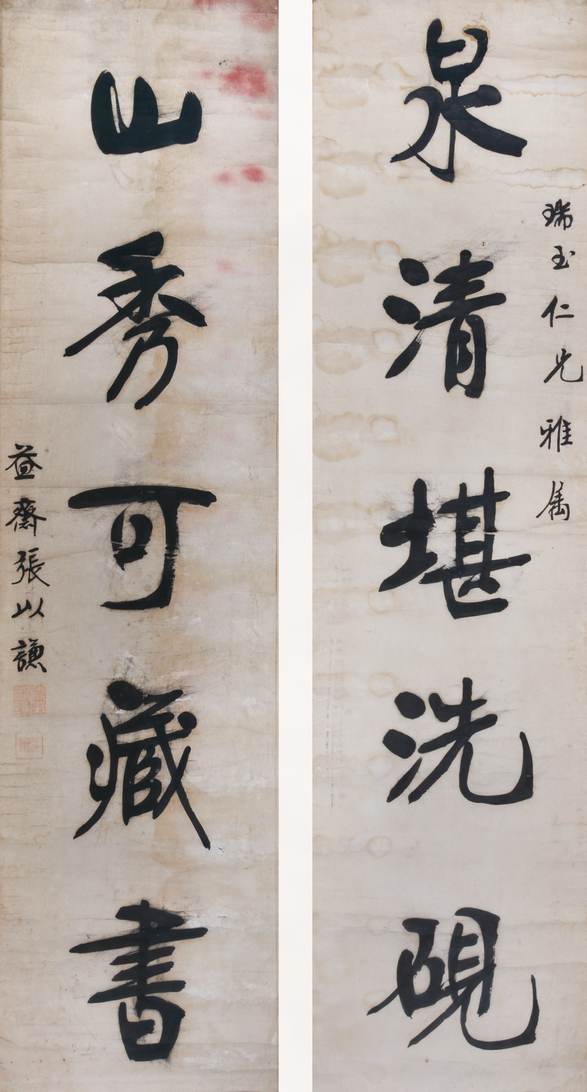 瑞玉仁兄雅属
泉清堪洗硯
山秀可藏書
益齋張以謙